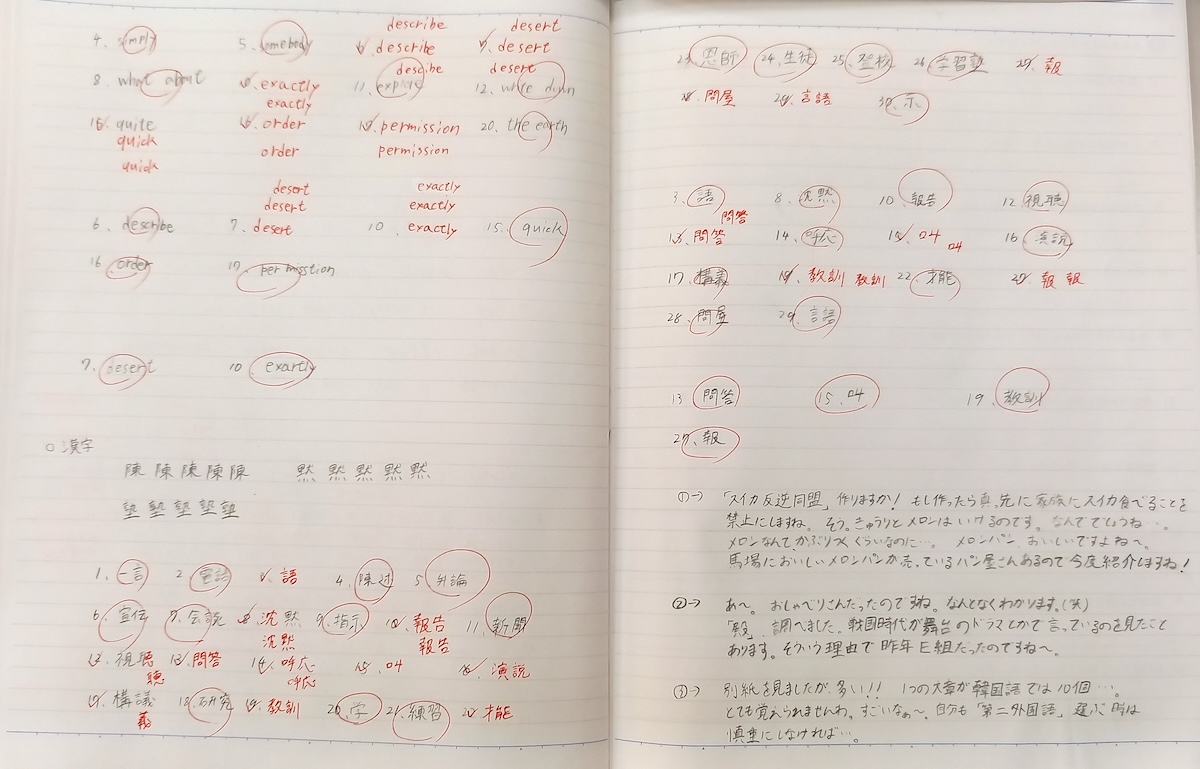 describe desert
4. simply 5. somebody 6. describe 7. desert
describe desert
8. what about 10. exactly 11. explain 12. write down
exactly
15. quite 16. order 17. permission 20. the earth
quick order permission
quick
desert exactly
desert exactly
6. describe 7. desert 10. exactly 15. quick
16. order 17. permisstion
7. desert 10 exartly
○ 漢字
陳 陳 陳 陳 陳 黙 黙 黙 黙 黙
塾 塾 塾 塾 塾
1. 一言 2. 電話 3. 語 4. 陳述 5. 弁論
6. 宣伝 7. 会談 8. 沈黙 9. 指示 10. 報告 11. 新聞
沈黙 報告
12. 視聴 13. 問答 14. 呼応 15. 叫 16. 演説
聴 呼応
17. 構議 18. 研究 19. 教訓 20. 学 21. 練習 22. 才能
義
23. 恩師 24. 生徒 25. 登校 26. 学習塾 27. 報
28. 問屋 29. 言語 30. 示
3. 語 8. 沈黙 10. 報告 12. 視聴
問答
13. 問答 14. 呼応 15. 叫 16. 演説
叫
17. 構義 19. 教訓 教訓 22. 才能 27. 報 報
28. 問屋 29. 言語
13. 問答 15. 叫 19. 教訓
27. 報
①→ 「スイカ反逆同盟」作りますか！ もし作ったら真っ先に家族にスイカ食べることを
禁止にしますね。そう。きゅうりとメロンはいけるのです。なんででしょうね…。
メロンなんて、かぶりつくくらいなのに…。メロンパン、おいしいですよね〜。
馬場においしいメロンパンが売っているパン屋さんあるので今度紹介しますね！
②→ あ〜。おしゃべりさんだったのですね。なんとなくわかります。(笑)
「殿」、調べました。戦国時代が舞台のドラマとかで言っているのを見たこと
あります。そういう理由で昨年E組だったのですね〜。
③→ 別紙を見ましたが、多い！！ 1つの文章が韓国語では10個…。
とても覚えられませんわ。すごいなぁ〜。自分も「第二外国語」選ぶ時は
慎重にしなければ…。